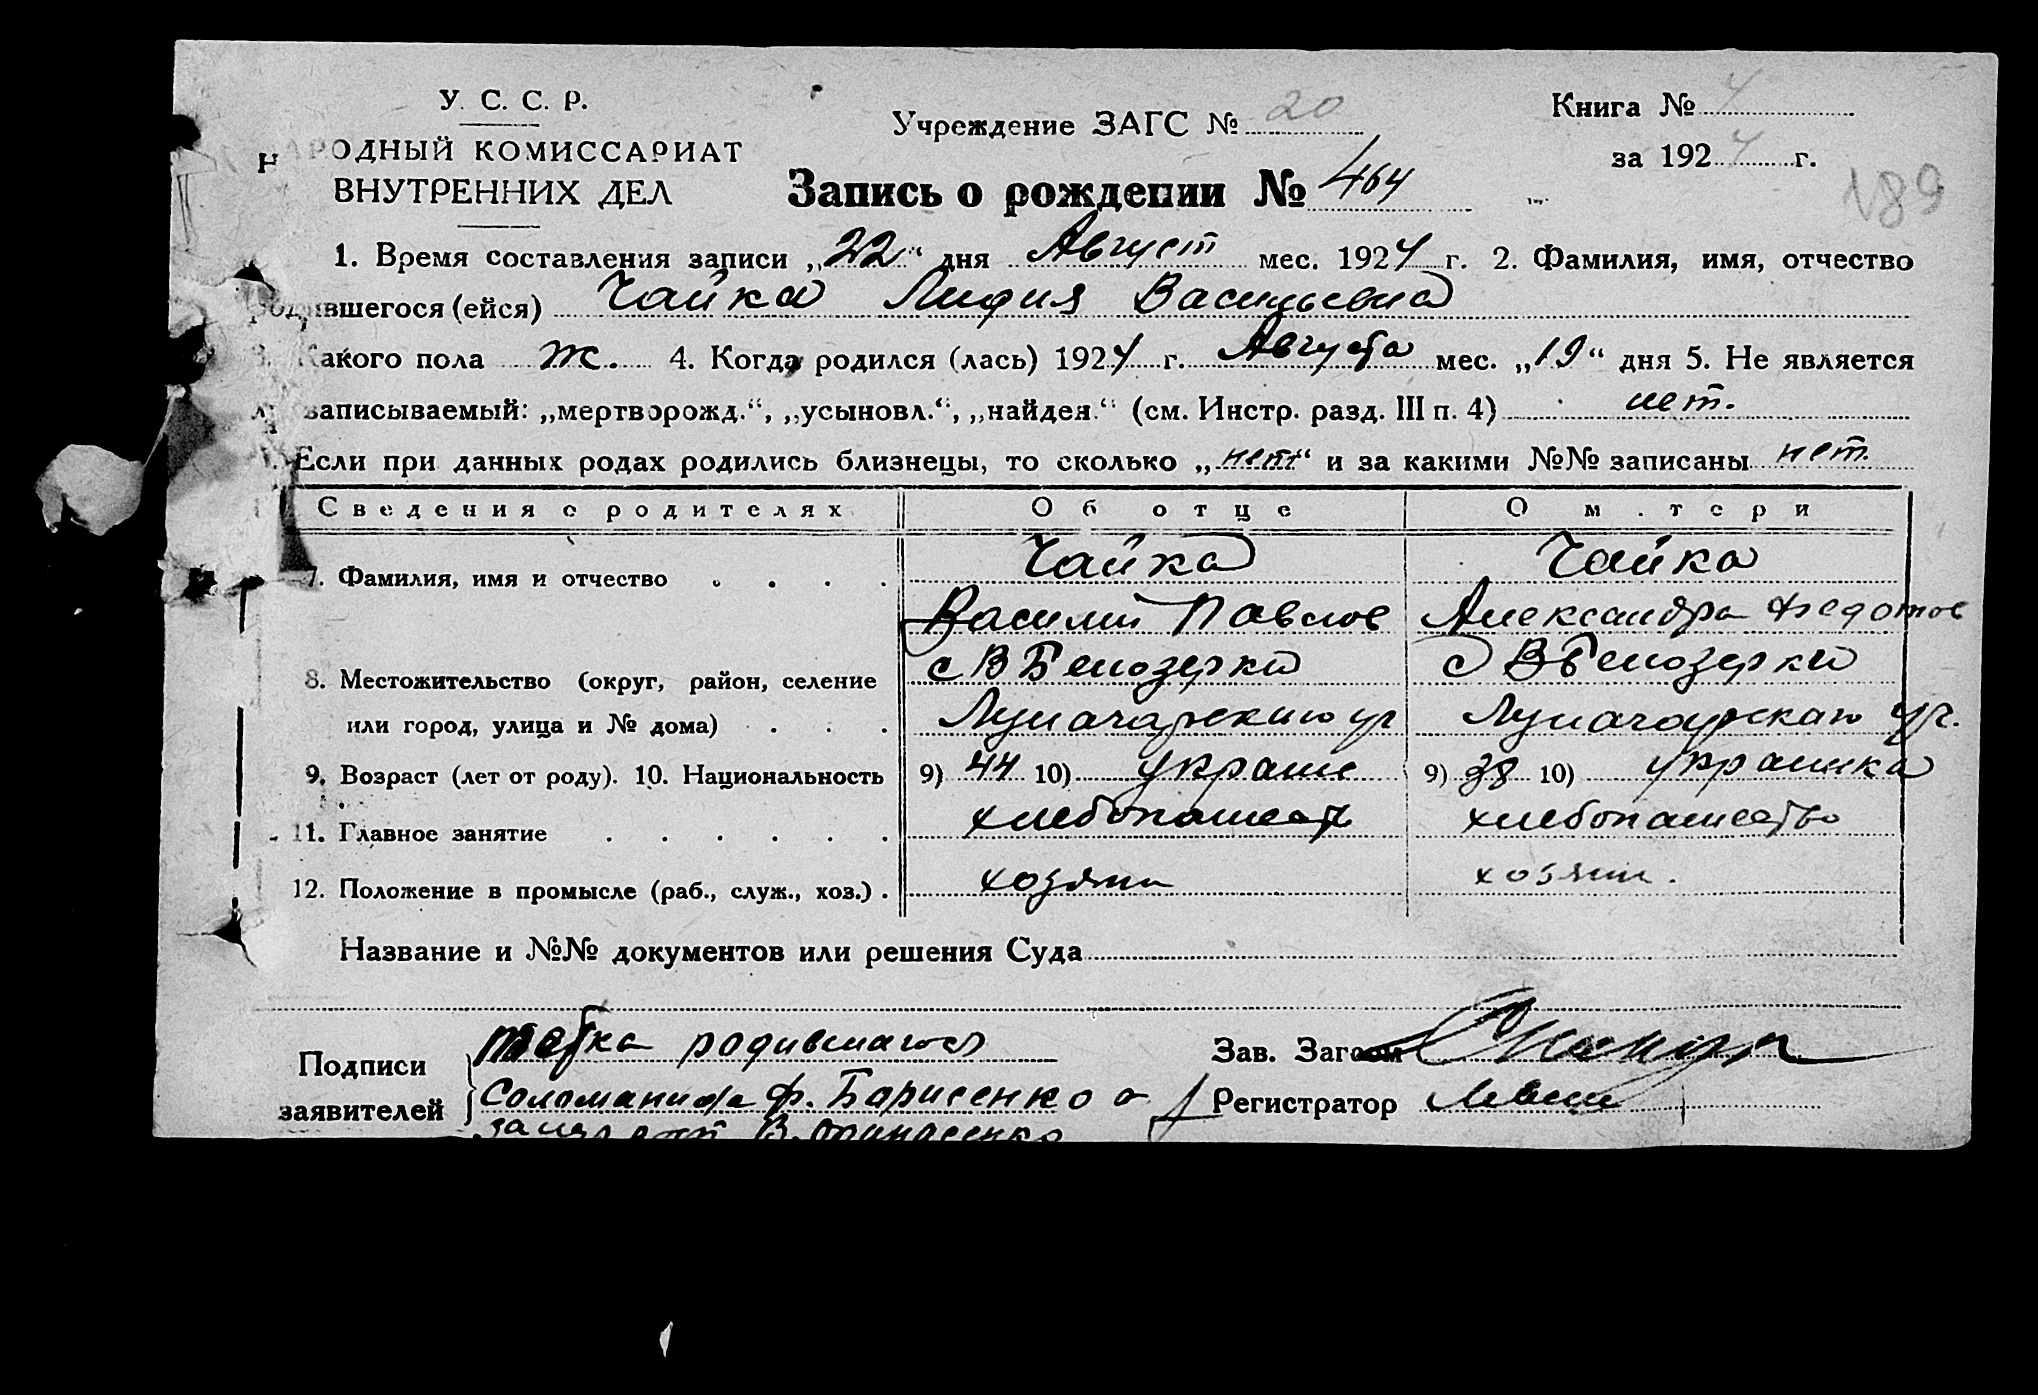 У. С. С. Р.
НАРОДНЫЙ КОМИССАРИАТ
ВНУТРЕННИХ ДЕЛ
Учреждение ЗАГС № 20
Книга № 4
за 1924 г.
189
Запись о рождении № 464
1. Время составления записи „22“ дня Август мес. 1924 г. 2. Фамилия, имя, отчество
родившегося (ейся) Чайка Лидия Васильевна
3. Какого пола ж. 4. Когда родился (лась) 1924 г. Августа мес. „19“ дня 5. Не является
ли записываемый: „мертворожд.“, „усыновл.“, „найден.“ (см. Инстр. разд. III п. 4) нет.
Если при данных родах родились близнецы, то сколько „нет“ и за какими №№ записаны нет.
Сведения о родителях Об отце О м.тери
7. Фамилия, имя и отчество Чайка Чайка
Василий Павлов Александра Федотов
8. Местожительство (округ, район, селение с В Белозерки с В Белозерки
или город, улица и № дома) Луначарскаю ул Луначарскаю ул.
9. Возраст (лет от роду). 10. Национальность 9) 44 10) украине 9) 38 10) украинка
11. Главное занятие хлебопашеств хлебопашество
12. Положение в промысле (раб., служ., хоз.) хозяин хозяин.
Название и №№ документов или решения Суда
Подписи заявителей
тетка родившагося
Соломанида Ф. Борисенко а
В. Афанасенко
Зав. Загсом
Регистратор